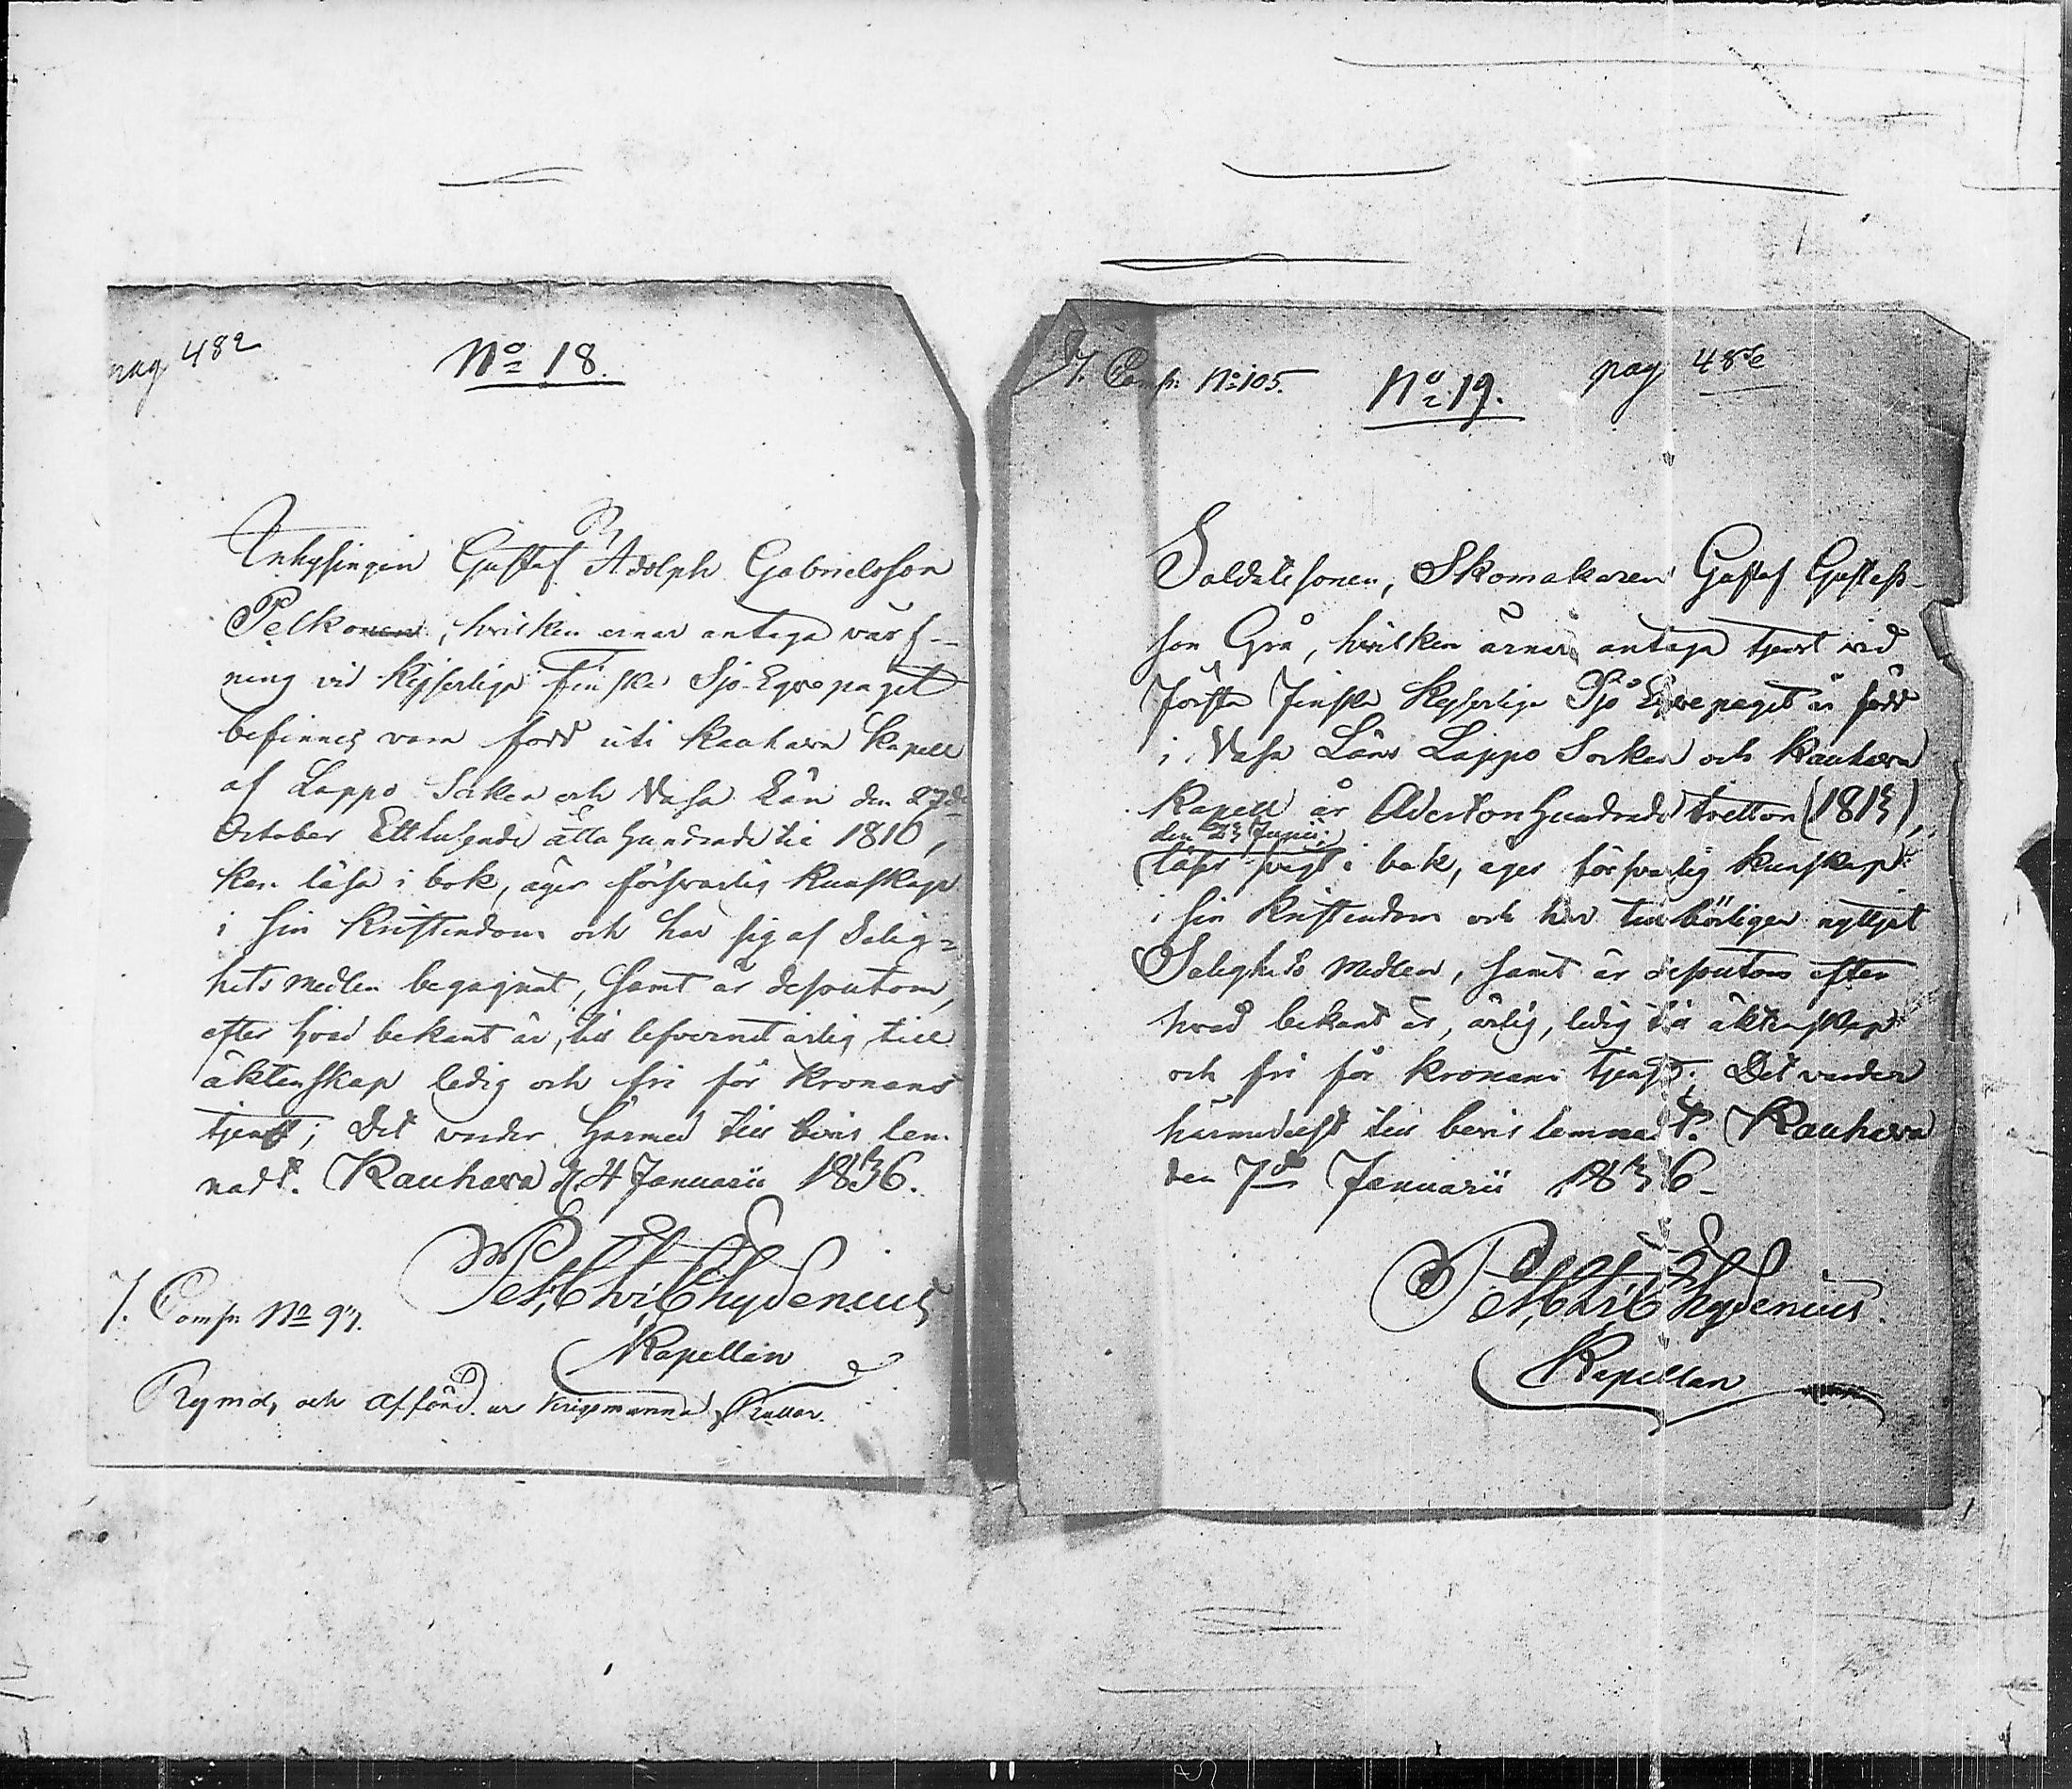 pag 482
No 18.
Inhysingen Gustaf Adolph Gabrielsson
Pelkonen, hvilken ernar antaga värf-
ning vid Kejserliga Finska Sjö-Eqvepaget
befinnes vara född uti Kauhava Kapell
af Lappo Socken och Vasa Län den 27de
October Ett tusende åtta hundrade tie 1810,
kan läsa i bok, äger försvarlig kunskap
i sin Kristendom och har sig af Salig=
hets medlen begagnat, samt är desoutom,
efter hvad bekant är, till lefvernet ärlig, till
äktenskap ledig och fri för Kronans
tjenst; Det varder härmed till bevis lem-
nadt. Kauhava d. 4 Januarii 1836.
Pet. Chr. Chydenius
Kapellan
7. Comp. No 97.
Rymd, och afförd ur Krigsmanna Rullor.
7. Comp. No 105.
No 19.
pag 482
Soldatssonen, Skomakaren Gustaf Gustafs-
son Grå, hvilken ärnar antaga tjenst vid
Första Finska Kejserliga Sjö Eqvepaget är född
i Vasa Läns Lappo Socken och Kauhava
Kapell år Adertonhundrade tretton (1813),
den 23 Junii;
läser svagt i bok, eger försvarlig kunskap
i sin Kristendom och har tillbörligen nyttjat
Salighets Medlen, samt är desoutom efter
hvad bekant är, ärlig, ledig till äktenskap
och fri för Kronans tjenst; Det varder
härmedelst till bevis lemnadt. Kauhava
den 7de Januarii 1836-
Pet. Chr. Chydenius.
Kapellan